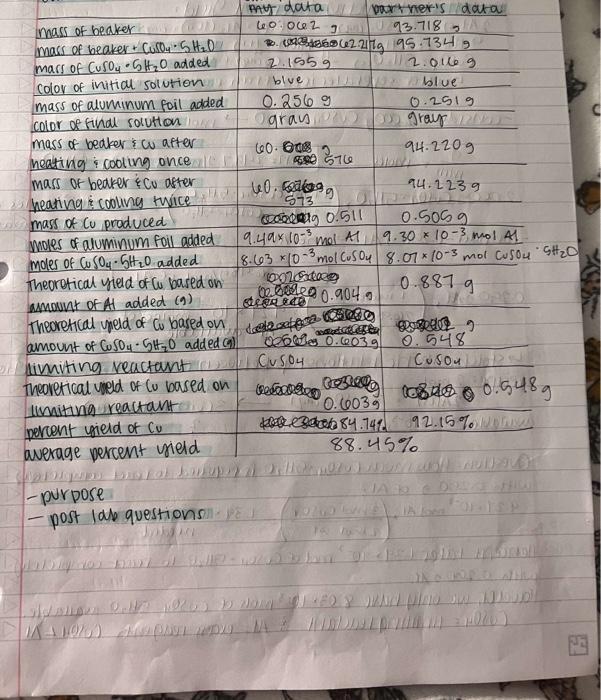 my data partner's data
mass of beaker 60.062 g 93.718 g
mass of beaker + CuSO4 · 5H2O 62.217g 95.734 g
mass of CuSO4 · 5H2O added 2.155 g 2.016 g
color of initial solution blue blue
mass of aluminum foil added 0.256 g 0.251 g
color of final solution gray gray
mass of beaker & cu after
heating & cooling once 60. 576 94.220 g
mass of beaker & Cu after
heating & cooling twice 60. 573 g 94.223 g
mass of Cu produced 0.511 0.505 g
moles of aluminium foil added 9.49 x 10-3 mol Al 9.30 x 10-3 mol Al
moles of CuSO4 · 5H2O added 8.63 x 10-3 mol CuSO4 8.07 x 10-3 mol CuSO4 · 5H2O
Theoretical yield of Cu based on
amount of Al added (g) 0.904 g 0.887 g
Theoretical yield of Cu based on
amount of CuSO4 · 5H2O added (g) 0.603 g 0.548 g
limiting reactant CuSO4 CuSO4
Theoretical yield of Cu based on
limiting reactant 0.603 g 0.548 g
percent yield of Cu 84.74% 92.15%
average percent yield 88.45%
- purpose
- post lab questions